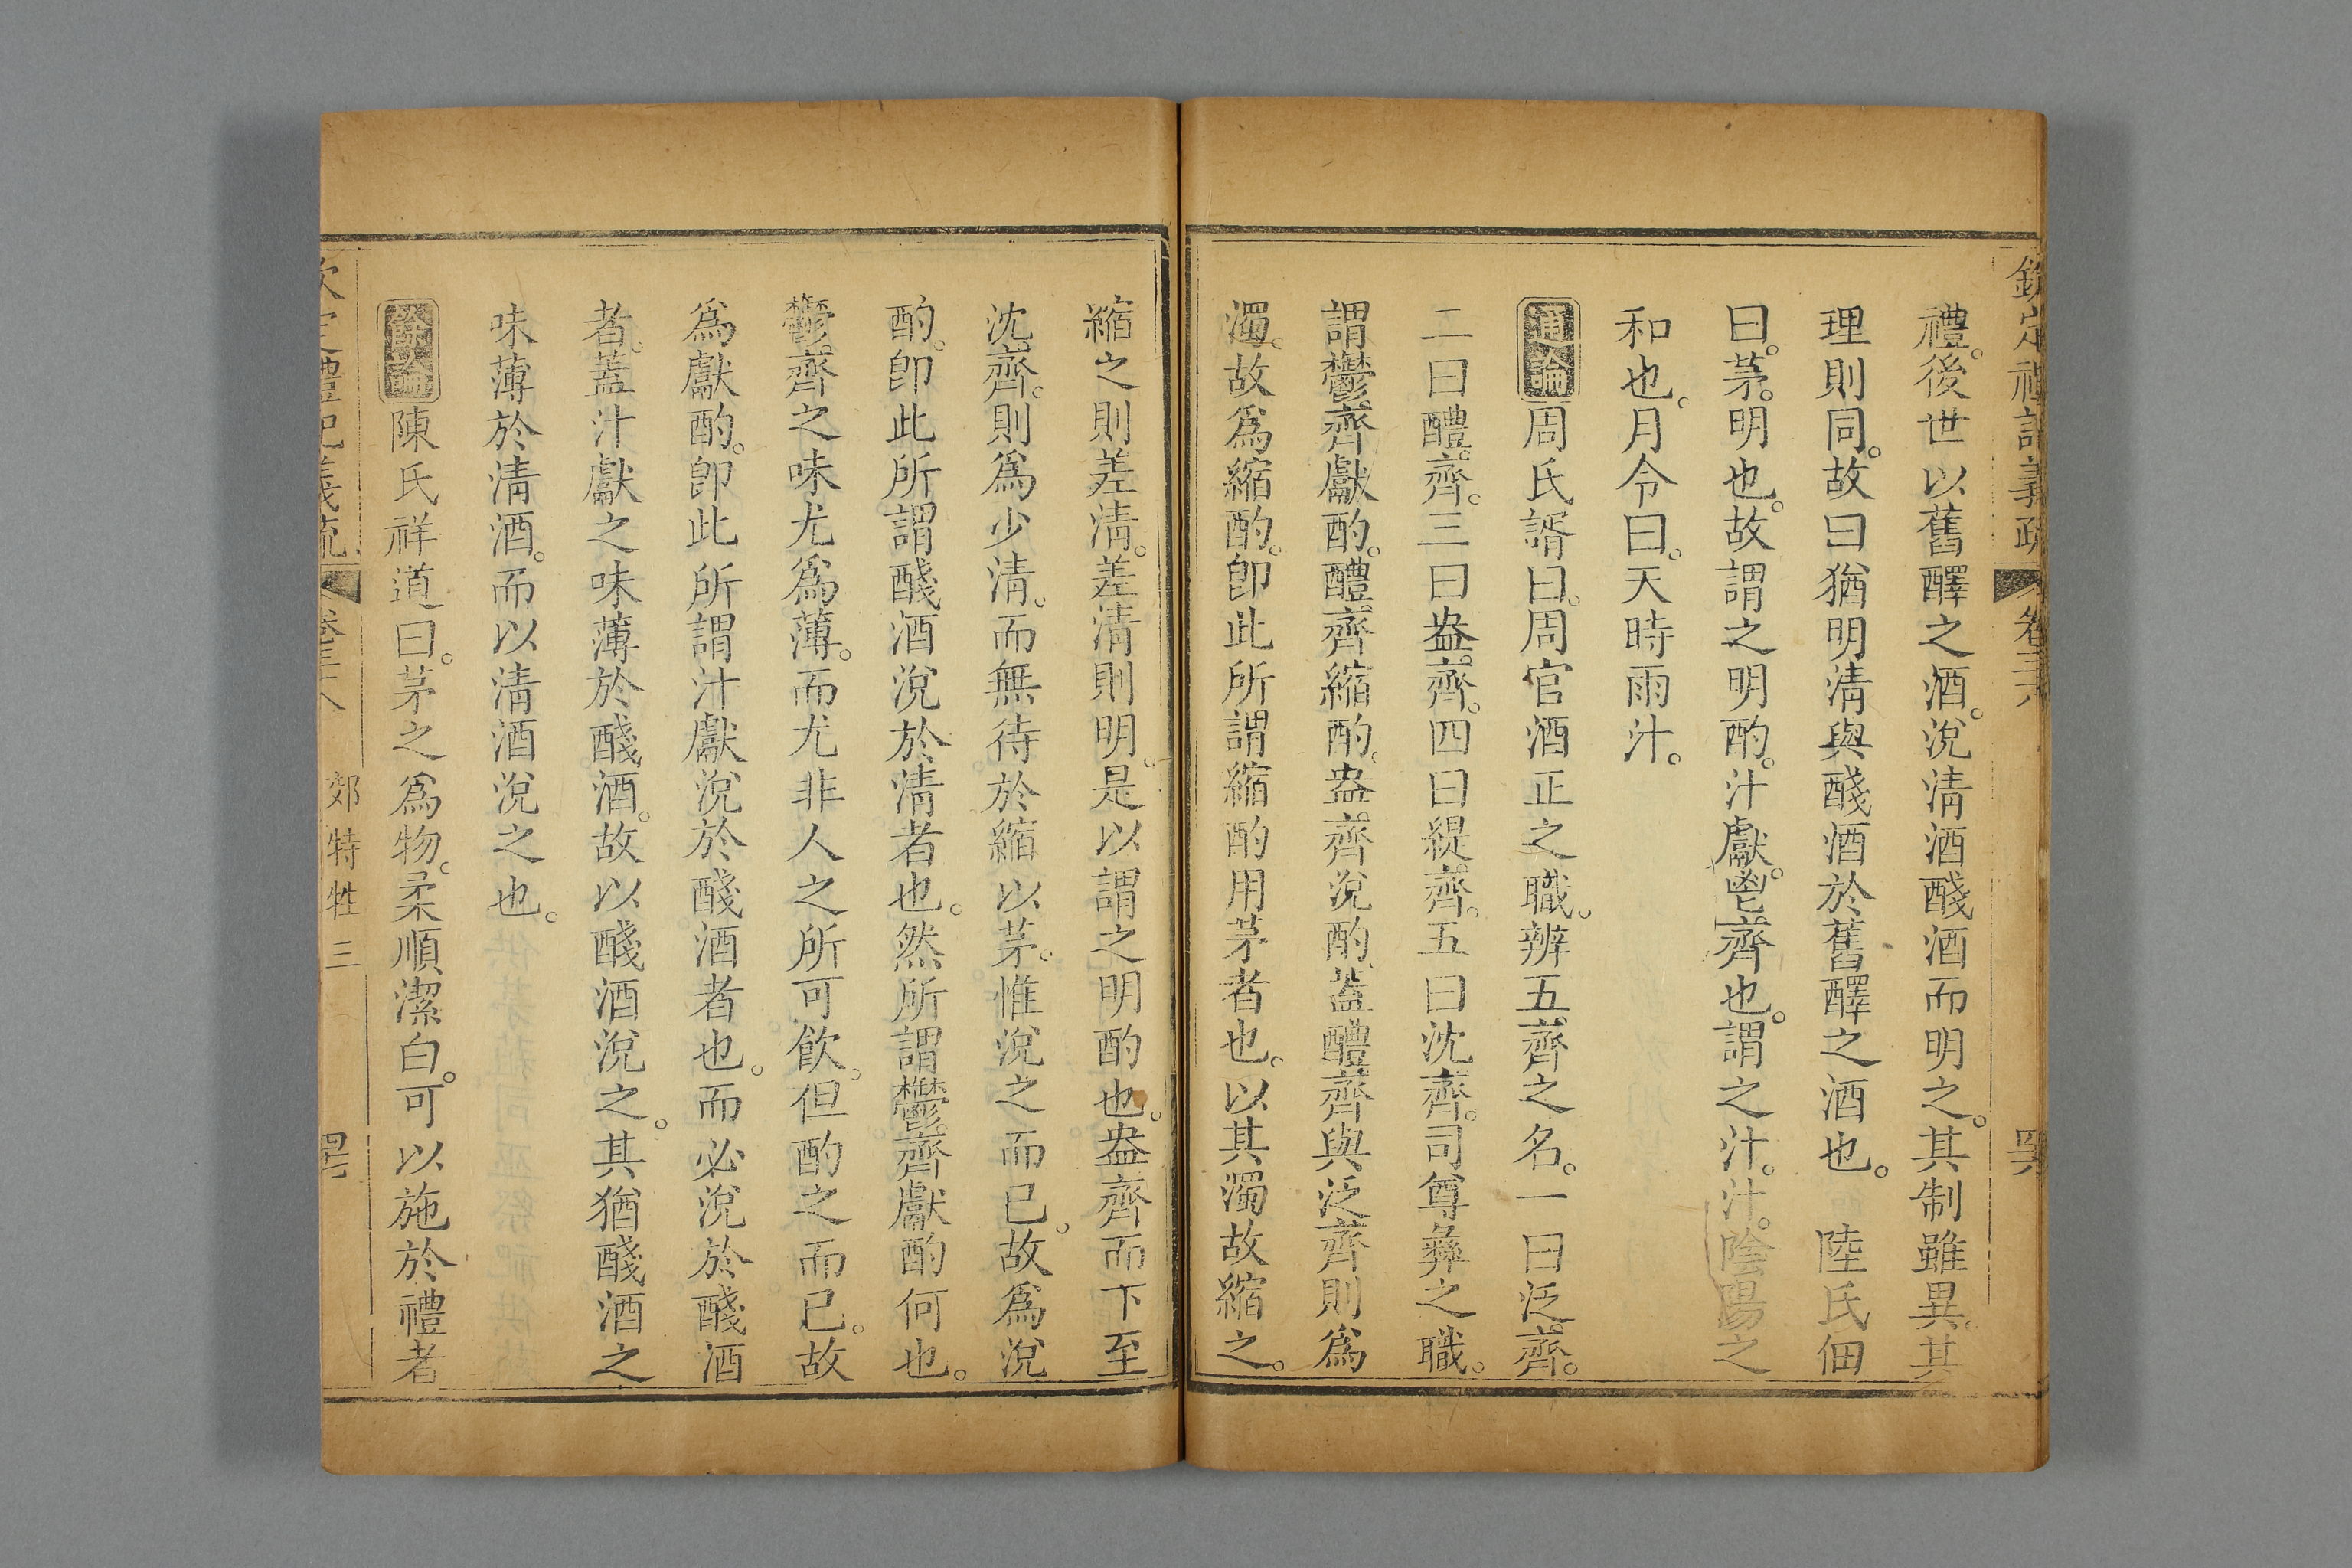 欽定禮記義疏 卷三十八 四六
禮。後世以舊醳之酒。涗清酒醆酒而明之。其制雖異。其
理則同。故曰猶明清與醆酒於舊醳之酒也。 陸氏佃
曰。茅。明也。故謂之明酌。汁獻。鬯齊也。謂之汁。汁。陰陽之
和也。月令曰。天時雨汁。
通論 周氏諝曰。周官酒正之職。辨五齊之名。一曰泛齊。
二曰醴齊。三曰盎齊。四曰緹齊。五曰沈齊。司尊彝之職。
謂鬱齊獻酌。醴齊縮酌。盎齊涗酌。蓋醴齊與泛齊則爲
濁。故爲縮酌。卽此所謂縮酌用茅者也。以其濁故縮之。
縮之則差清。差清則明。是以謂之明酌也。盎齊而下至
沈齊。則爲少清。而無待於縮以茅。惟涗之而已。故爲涗
酌。卽此所謂醆酒涗於清者也。然所謂鬱齊獻酌何也。
鬱齊之味尤爲薄。而尤非人之所可飮。但酌之而已。故
爲獻酌。卽此所謂汁獻涗於醆酒者也。而必涗於醆酒
者。蓋汁獻之味薄於醆酒。故以醆酒涗之。其猶醆酒之
味薄於清酒。而以清酒涗之也。
餘論 陳氏祥道曰。茅之爲物。柔順潔白。可以施於禮者
欽定禮記義疏 卷三十八 郊特牲三 四七